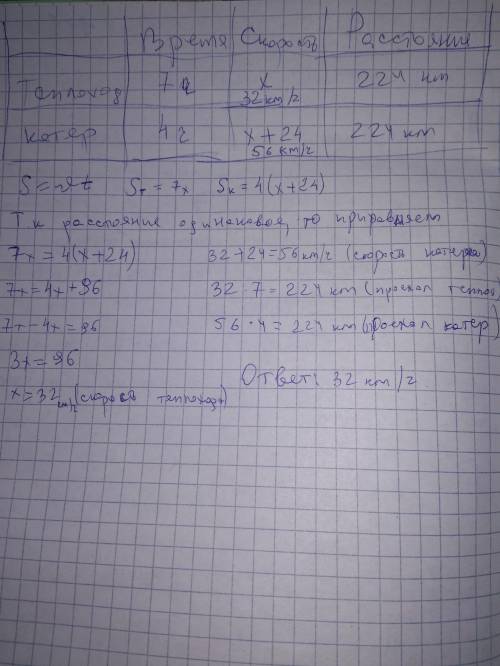 Время Скорость Расстояние
Теплоход 7ч x 32 км/ч 224 км
катер 4ч x+24 56 км/ч 224 км
S=vt Sт=7x Sк=4(x+24)
Т к расстояние одинаковое, то приравняем
7x=4(x+24) 32+24=56 км/ч (скорость катера)
7x=4x+96 32·7=224 км (проехал теплох
7x-4x=96 56·4=224 км (проехал катер)
3x=96
Ответ: 32 км/ч
x=32 км/ч (скорость теплохода)